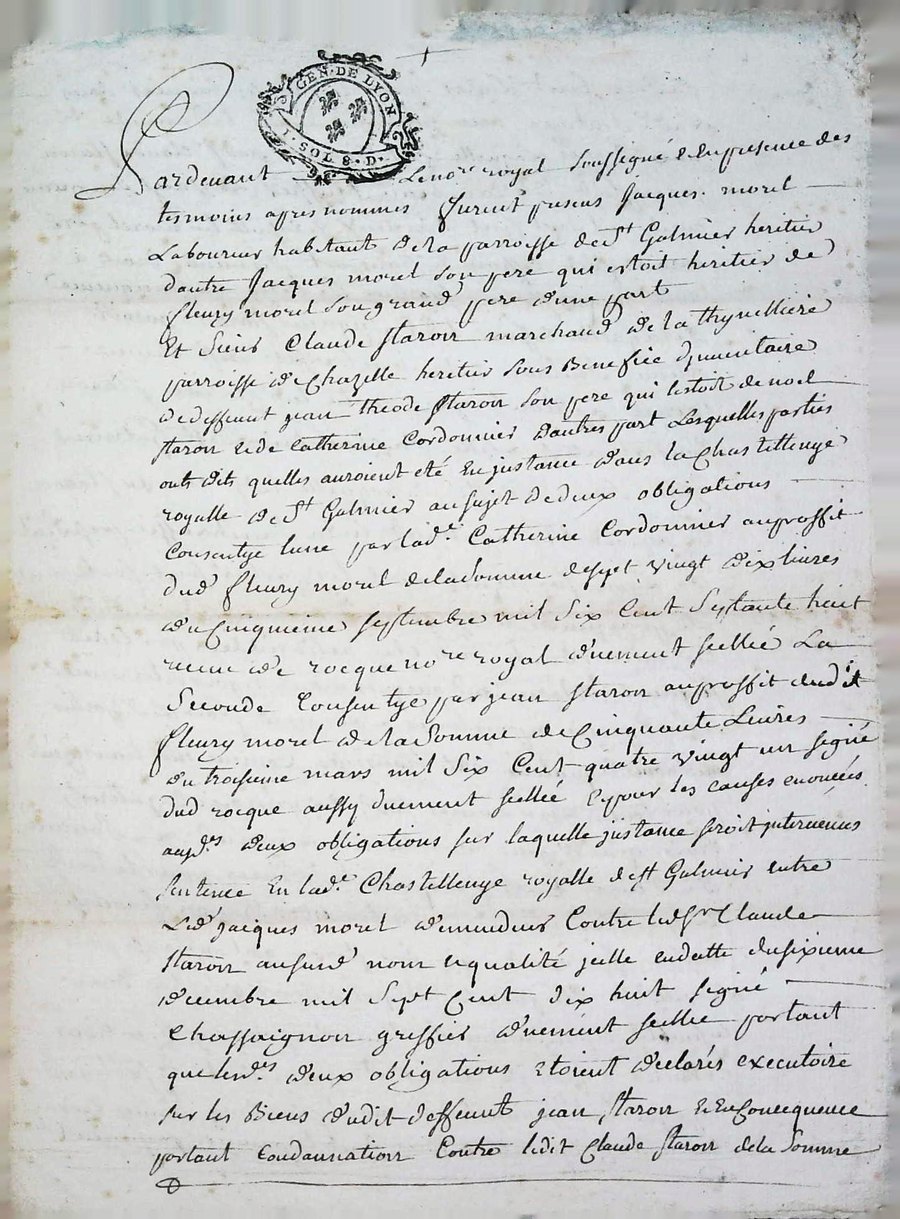 GEN · DE LYON
I · SOL 8 · D ·
Pardevant Le nore royal soussigné & en presence des
tesmoins apres nommés furent presens Jacques morel
Laboureur habitant de la parroisse de St Galmier heritier
dautre Jacques morel son pere qui estoit heritier de
fleury morel son grand pere d'une part
Et Sieur Claude Staron marchand de la thynelliere
parroisse de Chazelle heritier sous Benefice dynventaire
de deffunt jean Staron son pere qui lestoit de noel
staron & de Catherine Cordonnier dautres part Lesquelles parties
ont dit quelles auroient eté En justance dans la Chastellenye
royalle de St Galmier au sujet de deux obligations
Consentye lune par lade Catherine Cordonnier au proffit
dud fleury morel de la Somme de sept vingt dix livres
du Cinquieme septembre mil six Cent Septante huit
receue de rocque nore royal duement scellée La
Seconde Consentye par jean staron au proffit dudit
fleury morel de la Somme de Cinquante Livres
du troisieme mars mil six Cent quatre vingt un signé
dud rocque aussy duement scellée & pour les causes enoncées
auxdes deux obligations sur laquelle justance seroit intervenus
sentence En lade Chastellenye royalle de st Galmier entre
Led jacques morel demandeur Contre led sr Claude
staron ausurd nom & qualité jcelle en datte du sixieme
decembre mil Sept Cent dix huit signé
Chassaignon greffier duement scellée portant
que lesdes deux obligations Etoient declarés executoire
sur les Biens dudit deffunt jean staron & En Consequence
portant Condannation Contre ledit Claude staron de la Somme